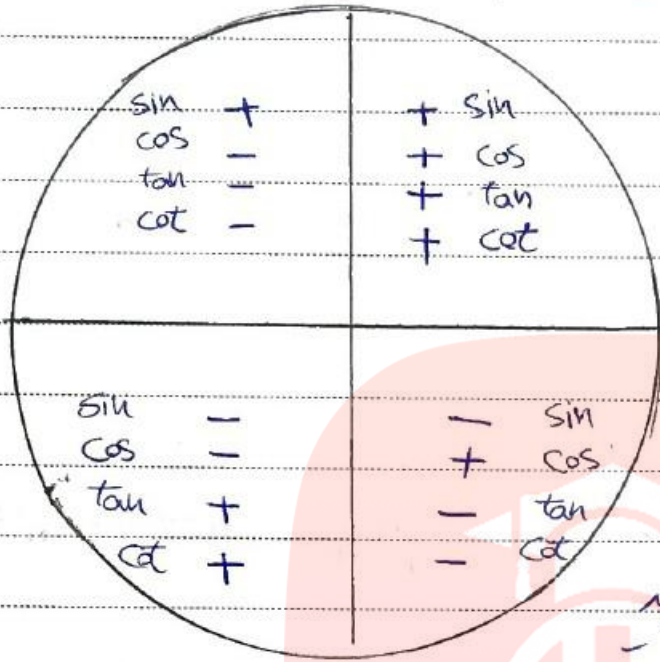 sin +
cos −
tan −
cot −
+ sin
+ cos
+ tan
+ cot
sin −
cos −
tan +
cot +
− sin
+ cos
− tan
− cot